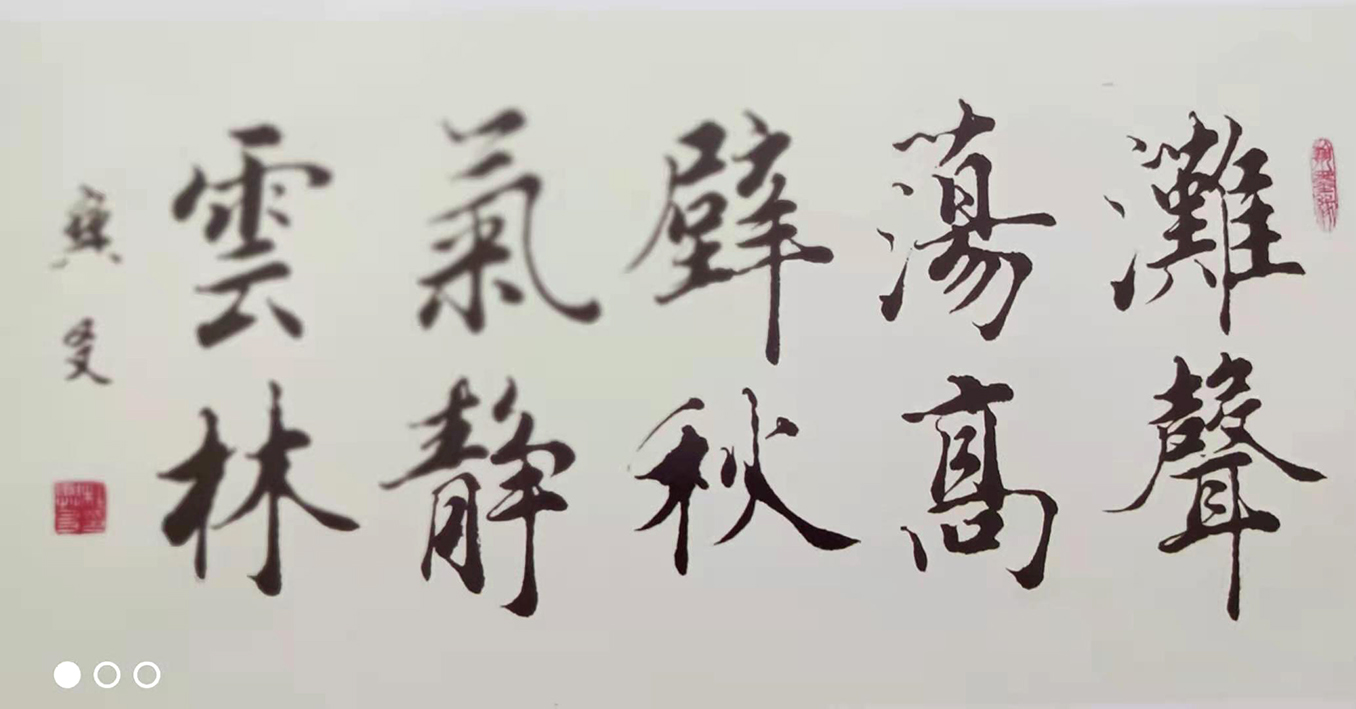 灘聲
蕩高
壁秋
氣靜
雲林